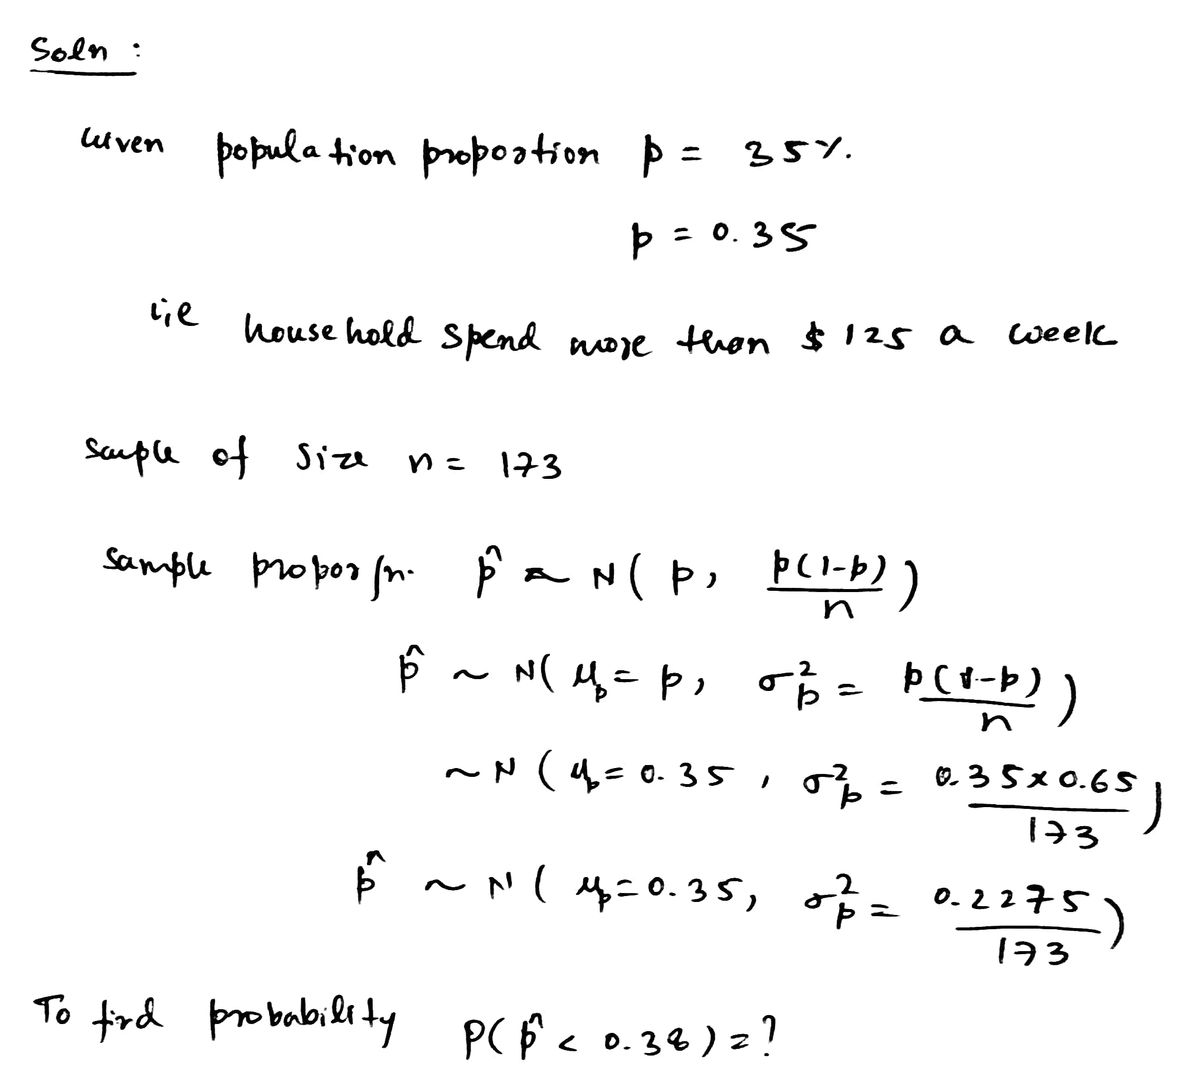 Soln :
Given population proportion p = 35%.
p = 0.35
i,e household spend more than $125 a week
Sample of size n = 173
Sample proportn. p̂ ≈ N( p, p(1-p)/n )
p̂ ~ N( μp = p, σ²p = p(1-p)/n )
~ N ( μp = 0.35 , σ²p = 0.35×0.65/173 )
p̂ ~ N ( μp = 0.35, σ²p = 0.2275/173 )
To find probability P( p̂ < 0.38 ) = ?